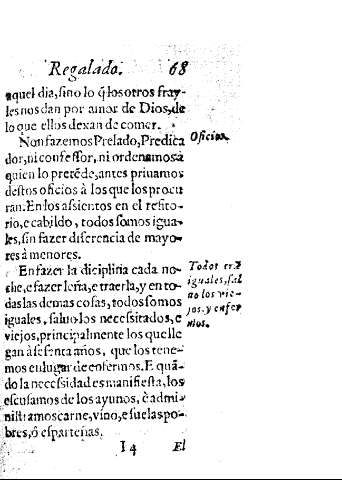 Regalado. 68
aquel dia, sino lo q̃ los otros fray-
les nos dan por amor de Dios, de
lo que ellos dexan de comer.
Non fazemos Prelado, Predica
dor, ni confessor, ni ordenamos à
quien lo pretẽde, antes priuamos
destos oficios à los que los procu
ran. En los assientos en el refito-
rio, e cabildo, todos somos igua-
les, sin fazer diferencia de mayo-
res à menores.
En fazer la diciplina cada no-
che, e fazer leña, e traerla, y en to-
das las demas cosas, todos somos
iguales, saluo los necessitados, e
viejos, principalmente los que lle
gan à sesenta años, que los tene-
mos en lugar de enfermos. E quã-
do la necessidad es manifiesta, los
escusamos de los ayunos, è admi-
nistramos carne, vino, e suelas po-
bres, ò esparteñas.
I 4 El
Oficios.
Todos erã
iguales, sal
uo los vie-
jos, y enfer
mos.